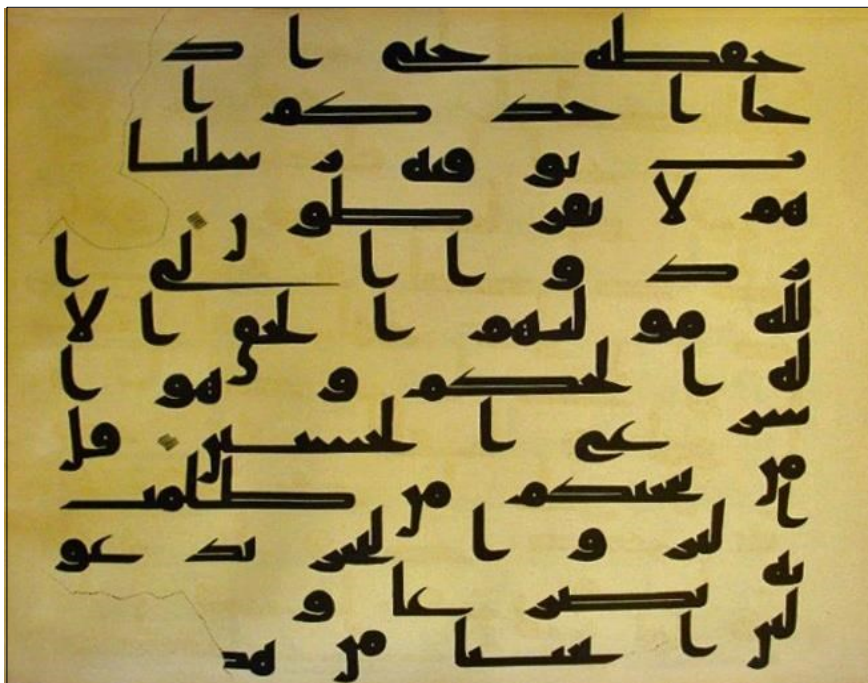 حفظه حتى ا ذ
جا ا حد كم ا
تو فته ر سلنا
هم لا يفر طو ن
ر د و ا ا لى ا
لله مو ليهم ا لحق ا لا
له ا لحكم و هو ا
سر ع ا لحسبين قل
من ينجيكم من ظلمت
ا لبر و ا لبحر تد عو
نه تضر عا و
لئن ا نجينا من هذ